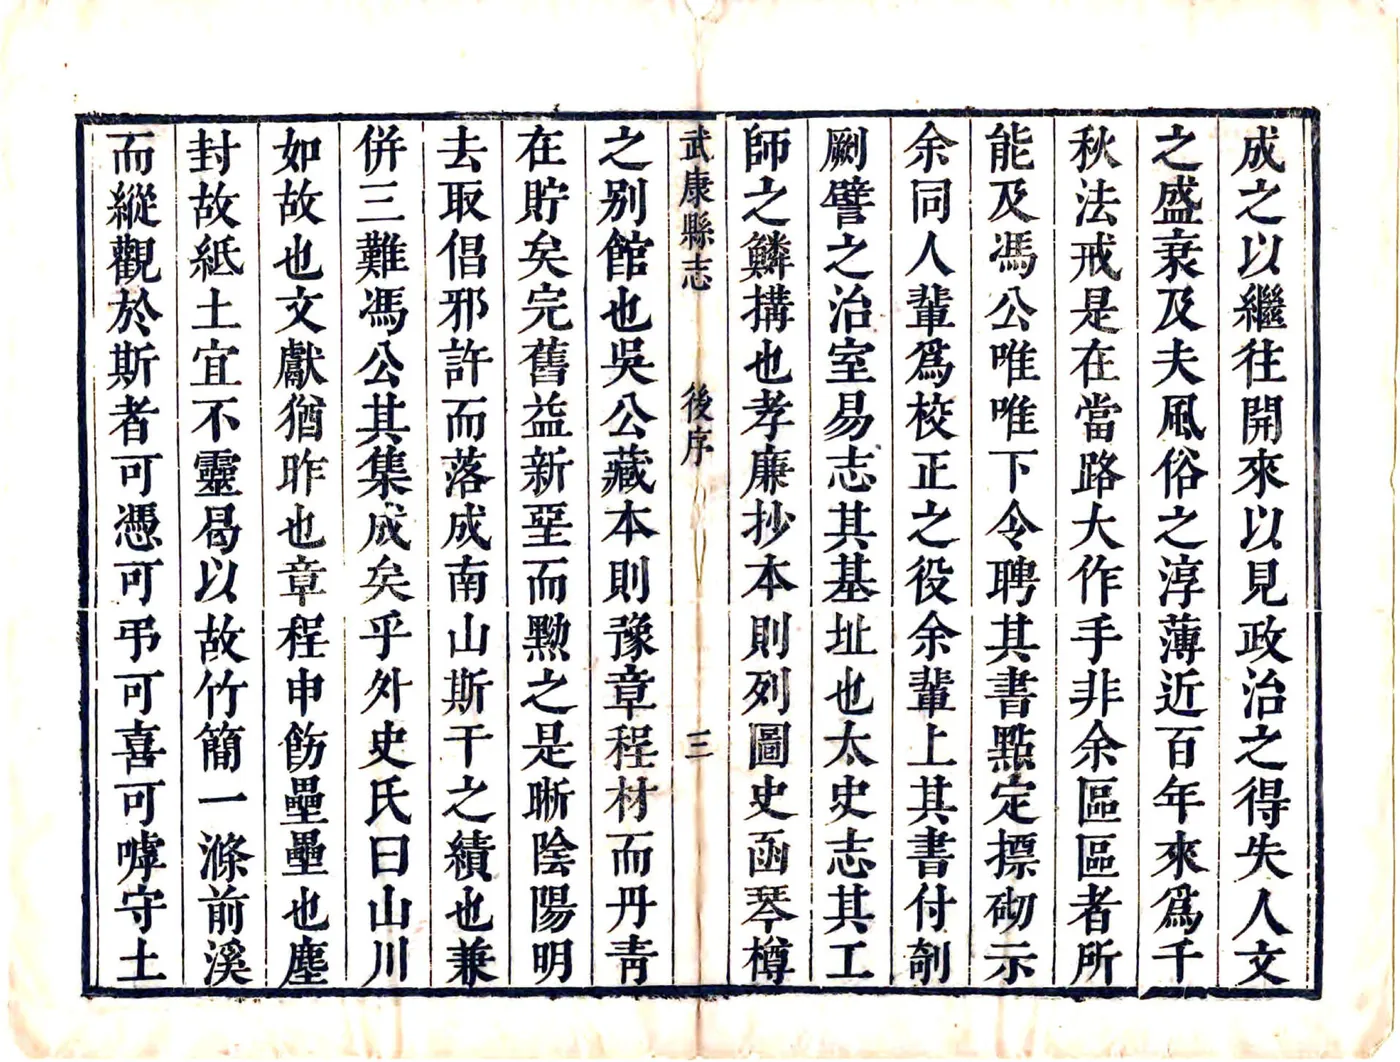 成之以繼往開來以見政治之得失人文
之盛衰及夫風俗之淳薄近百年來爲千
秋法戒是在當路大作手非余區區者所
能及馮公唯唯下令聘其書點定摽砌示
余同人輩爲校正之役余輩上其書付剞
劂譬之治室易志其基址也太史志其工
師之鱗搆也孝廉抄本則列圖史函琴樽
武康縣志 後序 三
之別館也吳公藏本則豫章程材而丹青
在貯矣完舊益新堊而黝之是晰陰陽明
去取倡邪許而落成南山斯干之績也兼
併三難馮公其集成矣乎外史氏曰山川
如故也文獻猶昨也章程申飭壘壘也塵
封故紙土宜不靈曷以故竹簡一滌前溪
而縱觀於斯者可憑可弔可喜可嘑守土